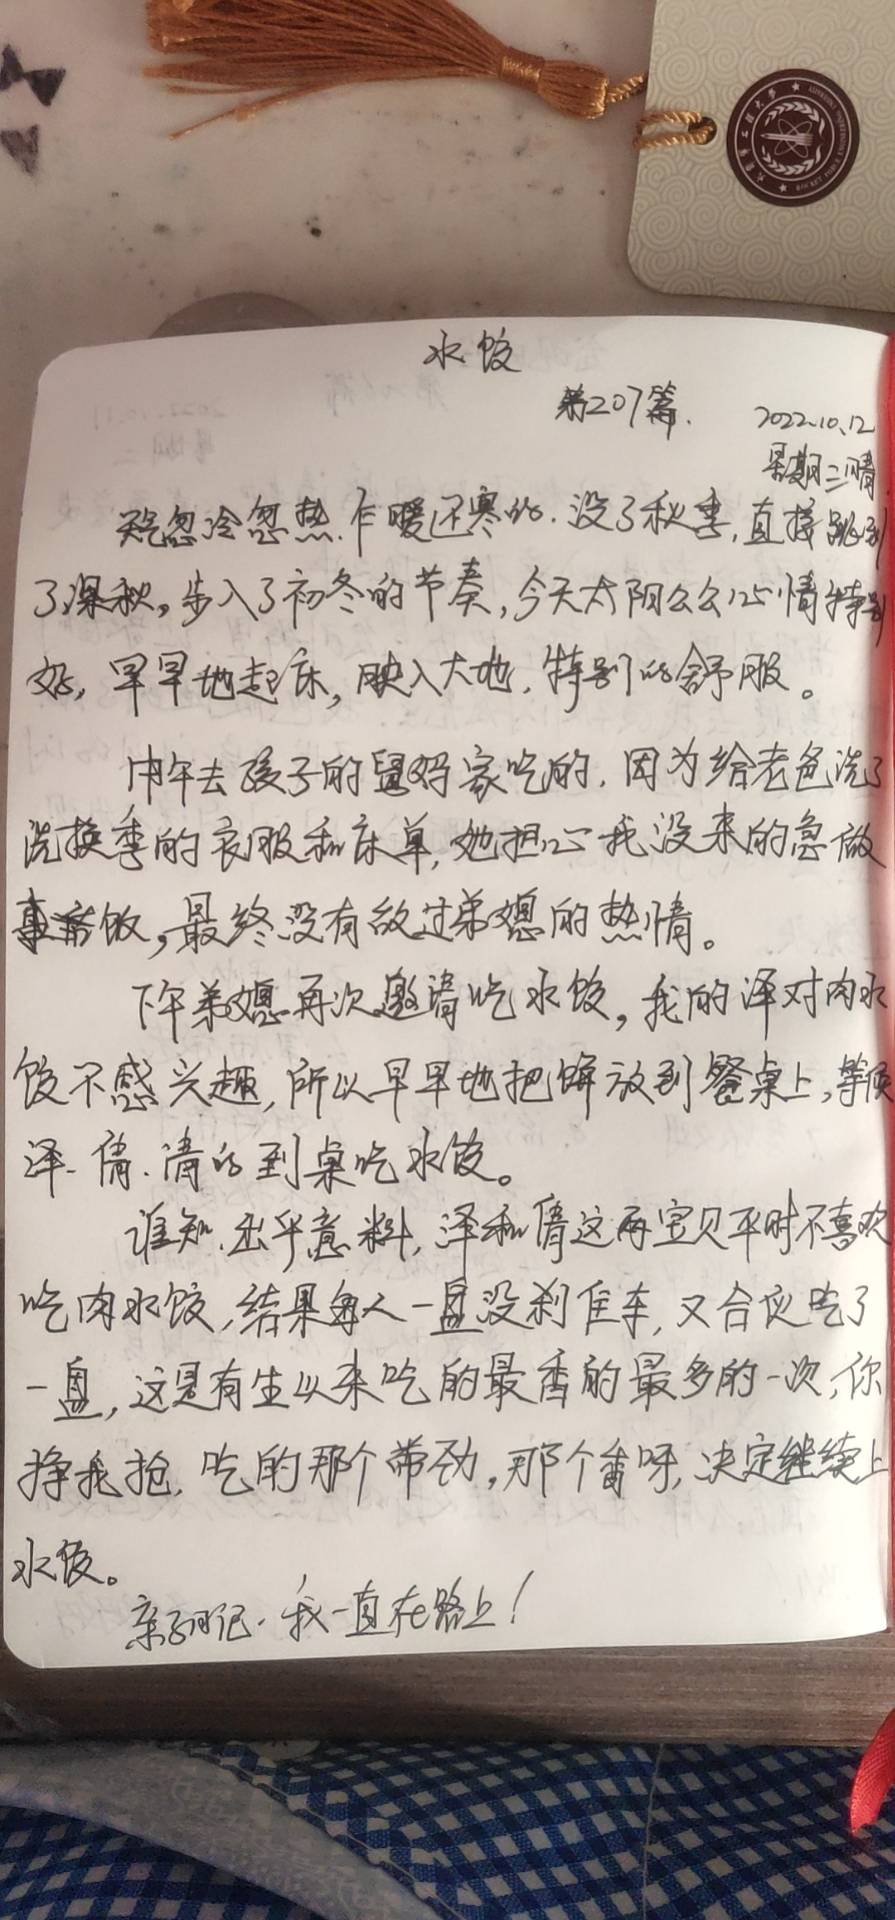 火箭军工程大学
ROCKET FORCE UNIVERSITY OF ENGINEERING
水饺
第207篇.
2022.10.12
星期三晴
天气忽冷忽热.乍暖还寒的.没了秋季,直接跳到
了深秋,步入了初冬的节奏,今天太阳么么心情特别
好,早早地起床,映入大地,特别的舒服。
中午去孩子的舅妈家吃的,因为给老爸洗了
洗换季的衣服和床单,她担心我没来的急做
饭,最终没有放过弟媳的热情。
下午弟媳再次邀请吃水饺,我的泽对肉水
饺不感兴趣,所以早早地把饼放到餐桌上,等候
泽.倩.清的到桌吃水饺。
谁知.出乎意料,泽和倩这两宝贝平时不喜欢
吃肉水饺,结果每人一盘没刹住车,又合伙吃了
一盘,这是有生以来吃的最香的最多的一次,你
挣我抢,吃的那个带劲,那个香呀,决定继续上
水饺。
亲子日记.我一直在路上!